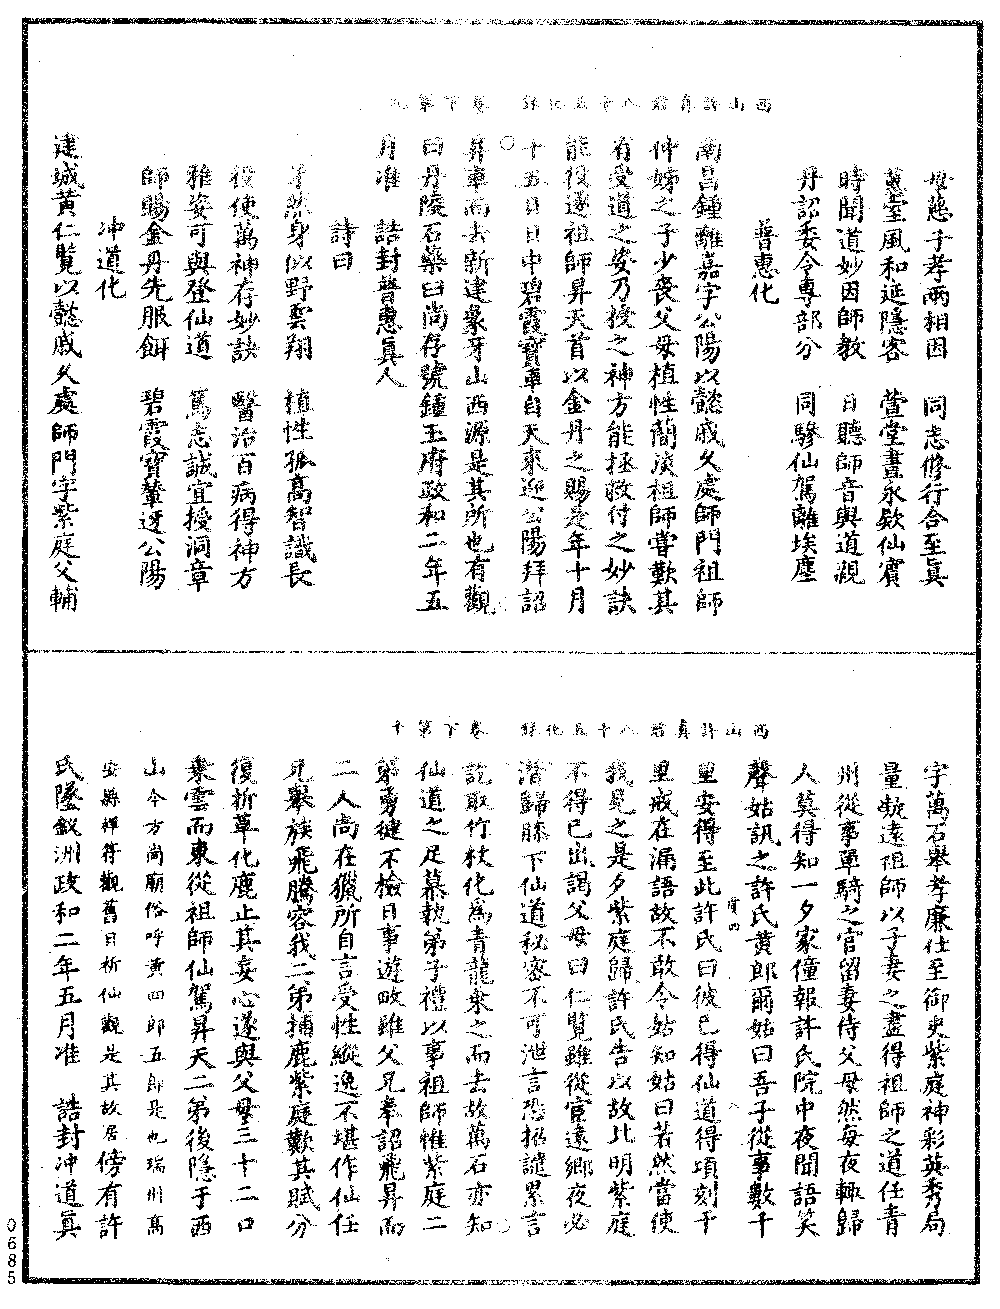 西山許真君八十五化錄 卷下第九
母慈子孝兩相因 同志修行合至真
蕙室風和延隱客 萱堂晝永欵仙賓
時聞道妙因師教 日聽師音與道親
丹詔委令專部分 同驂仙駕離埃塵
普惠化
南昌鍾離嘉字公陽以懿戚久處師門祖師
仲姊之子少喪父母植性蕳淡祖師嘗歎其
有受道之姿乃授之神方能拯救付之妙訣
能役遂祖師昇天首以金丹之賜是年十月
十五日日中碧霞寶車自天來迎公陽拜詔
昇車而去新建象牙山西源是其所也有觀
曰丹陵石藥臼尚存號鍾玉府政和二年五
月准 誥封普惠真人
詩曰
孑然身似野雲翔 植性孤高智識長
役使萬神存妙訣 醫治百病得神方
雅姿可與登仙道 篤志誠宜授洞章
師賜金丹先服餌 碧霞寶輦迓公陽
冲道化
建城黄仁覽以懿戚久處師門字紫庭父輔
西山許真君八十五化錄 卷下第十
字萬石舉孝廉仕至御史紫庭神彩英秀局
量宏遠祖師以子妻之盡得祖師之道任青
州從事單騎之官留妻侍父母然每夜輒歸
人莫得知一夕家僮報許氏院中夜聞語笑
聲姑訊之許氏黄郎爾姑曰吾子從事數千
里安得至此許氏曰彼已得仙道得頃刻千
里戒在漏語故不敢令姑知姑曰若然當使
我見之是夕紫庭歸許氏告以故比明紫庭
不得已出謁父母曰仁覽雖從宦遠鄉夜必
潛歸膝下仙道秘密不可泄言恐招譴累言
訖取竹杖化為青龍乘之而去故萬石亦知
仙道之足慕執弟子禮以事祖師惟紫庭二
弟勇健不檢日事遊畋雖父兄奉詔飛昇而
二人尚在獵所自言受性縱逸不堪作仙任
兄舉族飛騰容我二弟捕鹿紫庭歎其賦分
復折草化鹿止其妄心遂與父母三十二口
乘雲而東從祖師仙駕昇天二弟後隱于西
山今方尚廟俗呼黄四郎五郎是也瑞州高
安縣祥符觀舊曰祈仙觀是其故居傍有許
氏墜釵洲政和二年五月准 誥封冲道真
0685